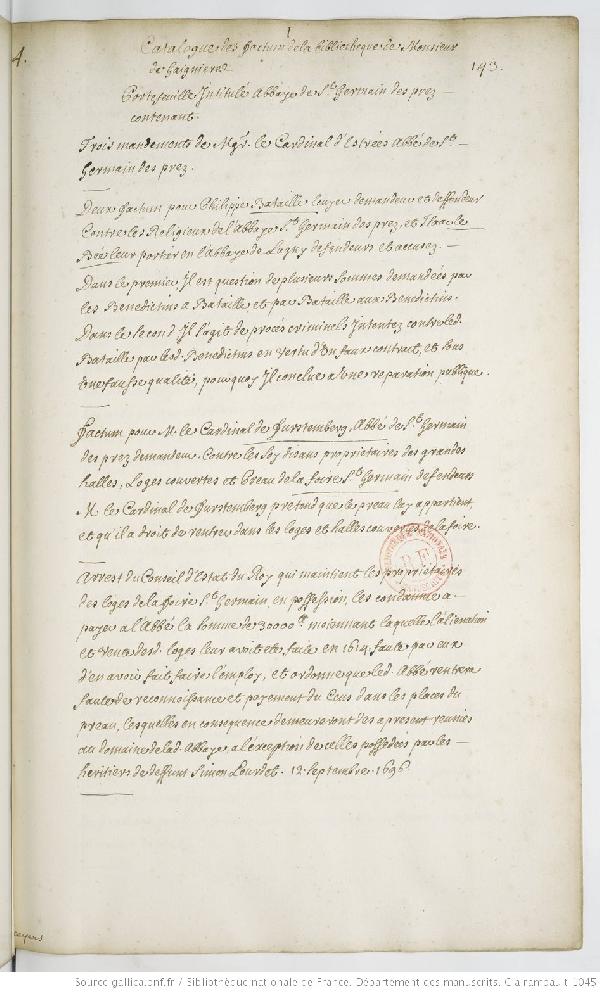 4.
Catalogue des factum de la bibliotheque de Monsieur
de Gaignieres
143.
Portefeuille Intitulé Abbaye de St. Germain des prez —
contenant.
Trois mandements de Mgr. le Cardinal d'Estrées Abbé de St. —
Germain des prez.
Deux factum pour Philippe Bataille Ecuyer demandeur et deffendeur
Contre les Religieux de l'Abbaye St. Germain des prez, et
leur portier en l'abbaye de Lagny defendeurs et accusez. —
Dans le premier Il est question de plusieurs sommes demandées par
les Benedictins a Bataille et par Bataille aux Benedictins.
Dans le second Il s'agit de procés criminels Intentez contre led.
Bataille par lesd. Benedictins en vertu d'Un faux contract, et sous
Une fausse qualité, pourquoy Il conclue a Une reparation publique.
Factum pour M. le Cardinal de Furstemberg, Abbé de St. Germain
des prez demandeur. Contre les soy disans proprietaires des grandes
halles, Loges couvertes et Preau de la foire St. Germain defendeurs
M. le Cardinal de Furstemberg pretend que le preau luy appartient,
et qu'il a droit de rentrer dans les loges et halles couvertes de la foire.
Arrest du Conseil d'Estat du Roy qui maintient les proprietaires
des loges de la foire St. Germain en possession, les condamne a
payer a l'Abbé la somme de 30000tt. moiennant laquelle l'alienation
et Vente desd. loges leur avoit eté faite en 1614 faute par eux
d'en avoir fait faire l'employ, et ordonne que led. Abbé rentrera
faute de reconnoissance et payement du Cens dans les places du
preau, lesquelles en consequence demeureront des apresent reunies
au domaine de lad. Abbaye, a l'exception de celles possedées par les —
heritiers de deffunt Simon Lourdet. 12. septembre. 1696.
Source gallica.bnf.fr / Bibliothèque nationale de France. Département des manuscrits. Clairambault 1045